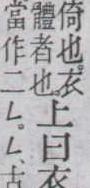 倚也。衣
體者也。
上曰衣
當作二乚。乚、古